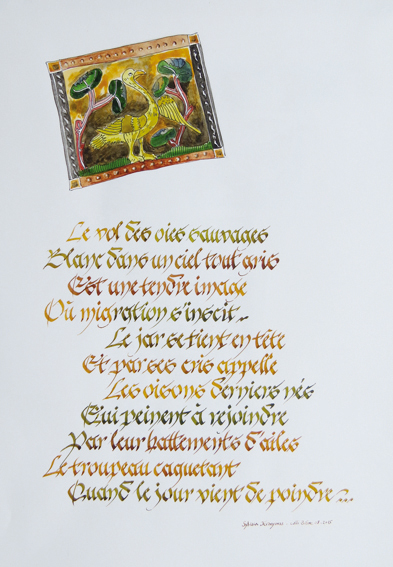 Le vol des oies sauvages
Blanc dans un ciel tout gris
Est une tendre image
Où migration s'inscit...
Le jar se tient en tête
Et par ses cris appelle
Les oisons derniers nés
Qui peinent à rejoindre
Par leur battements d'ailes
Le troupeau caquetant
Quand le jour vient de poindre...